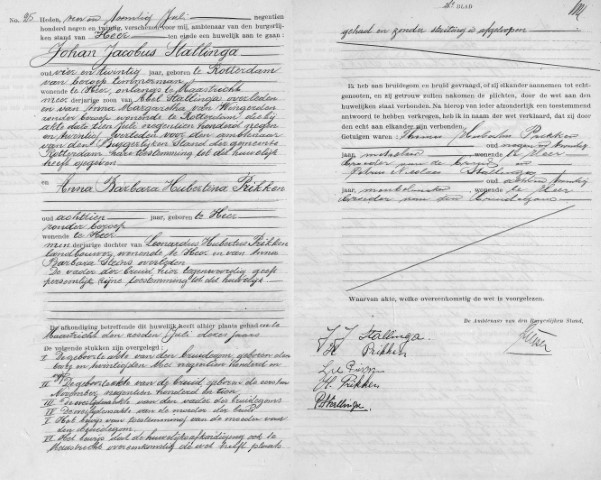 No. 25. Heden, zeven en twintig Juli negentien
honderd negen en twintig, verschenen voor mij, ambtenaar van den burgerlijken
stand van Heer ten einde een huwelijk aan te gaan:
Johan Jacobus Stallinga
oud vier en twintig jaar, geboren te Rotterdam
van beroep timmerman
wonende te Heer, onlangs te Maastricht
meerderjarige zoon van Abel Stallinga overleden
en van Anna Margaretha van Wingerden
zonder beroep wonende te Rotterdam die bij
akte dato tien Juli negentien honderd negen
en twintig, verleden voor den ambtenaar
van den Burgerlijken Stand der gemeente
Rotterdam haar toestemming tot dit huwelijk
heeft gegeven
en
Anna Barbara Hubertina Prikken
oud achttien jaar, geboren te Heer
zonder beroep
wonende te Heer
minderjarige dochter van Leonardus Hubertus Prikken
landbouwer, wonende te Heer en van Anna
Barbara Steins overleden
De vader der bruid, hier tegenwoordig geeft
persoonlijk zijne toestemming tot dit huwelijk
De afkondiging betreffende dit huwelijk heeft alhier plaats gehad en te
Maastricht den Juli dezes jaars
De volgende stukken zijn overgelegd:
I De geboorteakte van den bruidegom, geboren den
negentien honderd en
II De geboorteakte van de bruid, geboren de
November negentien honderd en tien
III De overlijdensakte van den vader der bruidegoms
IV De overlijdensakte van de moeder der bruid
V Het bewijs van toestemming van de moeder van
den bruidegom
VI Het bewijs dat de huwelijksafkondiging ook te
Maastricht overeenkomstig de wet heeft plaats
BLAD
gehad en zonder stuiting is afgeloopen
Ik heb aan bruidegom en bruid gevraagd, of zij elkander aannemen tot echtgenooten,
en zij getrouw zullen nakomen de plichten, door de wet aan den
huwelijken staat verbonden. Na hierop van ieder afzonderlijk een toestemmend
antwoord te hebben verkregen, heb ik in naam der wet verklaard, dat zij door
den echt aan elkander zijn verbonden.
Getuigen waren Hubertus Prikken
oud negen en twintig
jaar, metselaar wonende te Heer
broeder van de bruid en
Petrus Nicolaas Stallinga
oud achttien twintig
jaar, wonende te Heer
broeder van den bruidegom
Waarvan akte, welke overeenkomstig de wet is voorgelezen.
De Ambtenaar van den Burgerlijken Stand,
J J Stallinga
Prikken
H. Prikken
P Stallinga